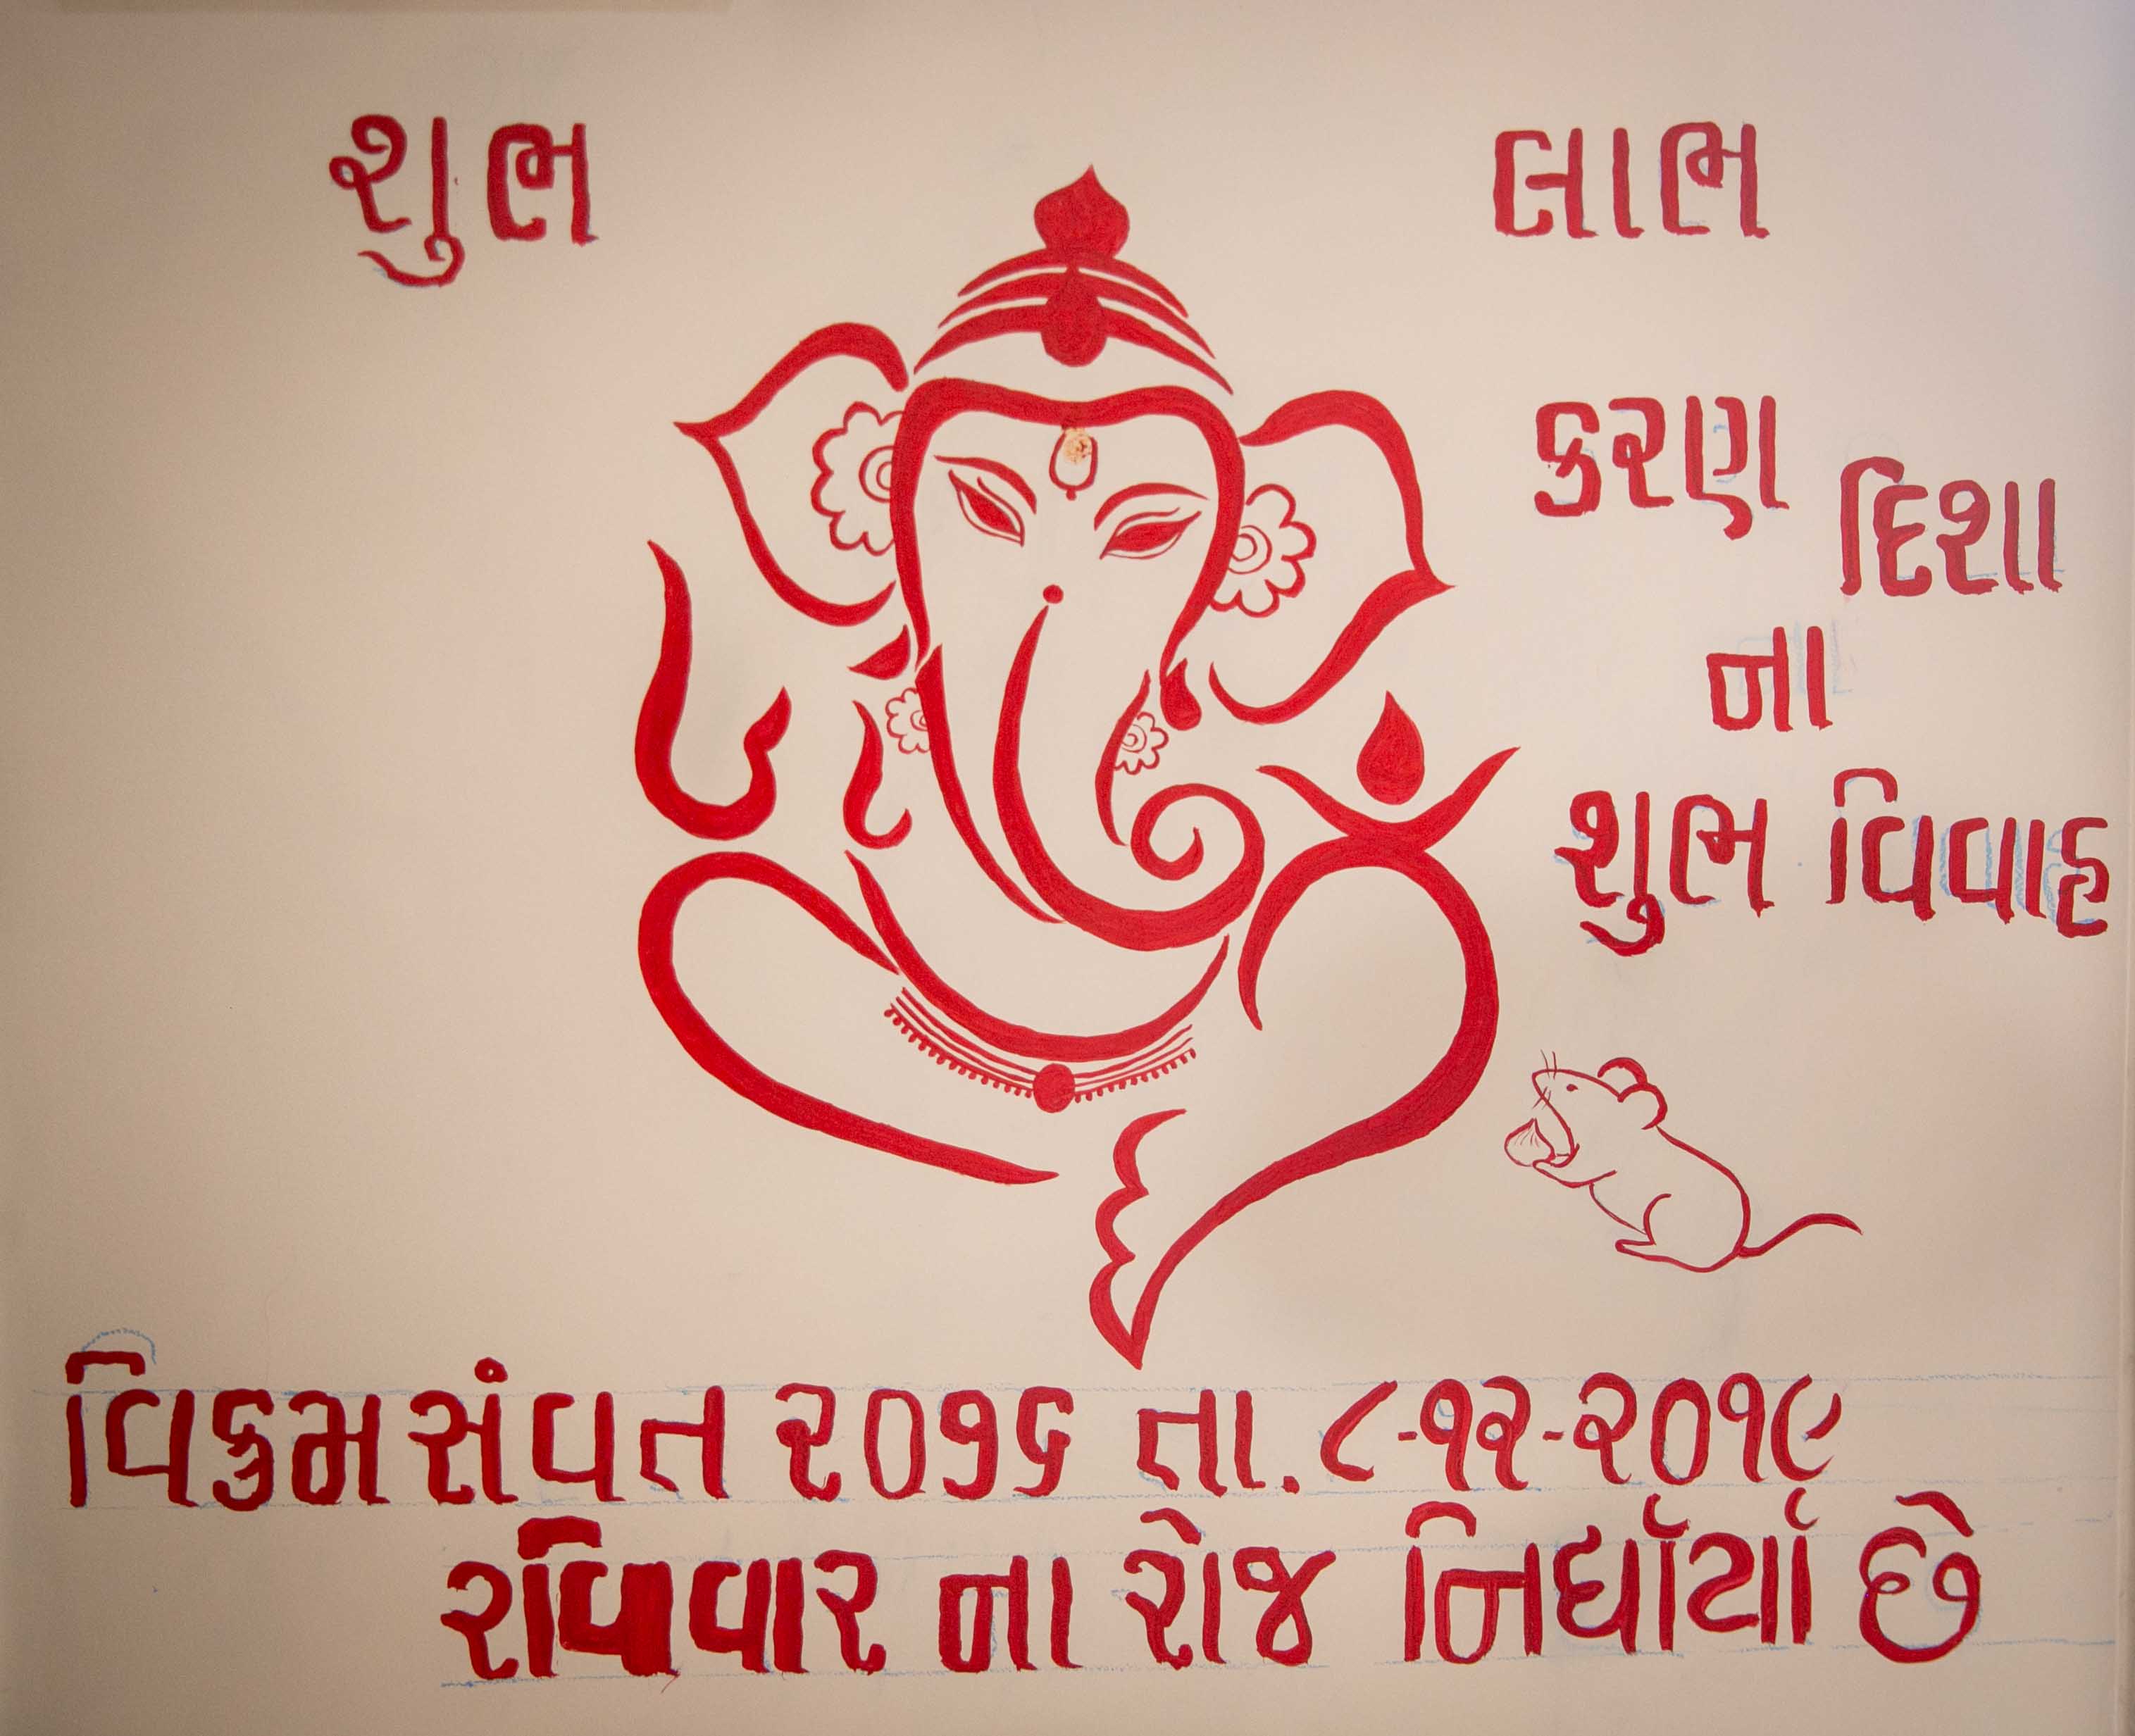 શુભ
લાભ
કરણ
દિશા
ના
શુભ વિવાહ
વિક્રમ સંવત ૨૦૧૬ તા. ૮-૧૨-૨૦૧૯
રવિવાર ના રોજ નિર્ધાર્યા છે